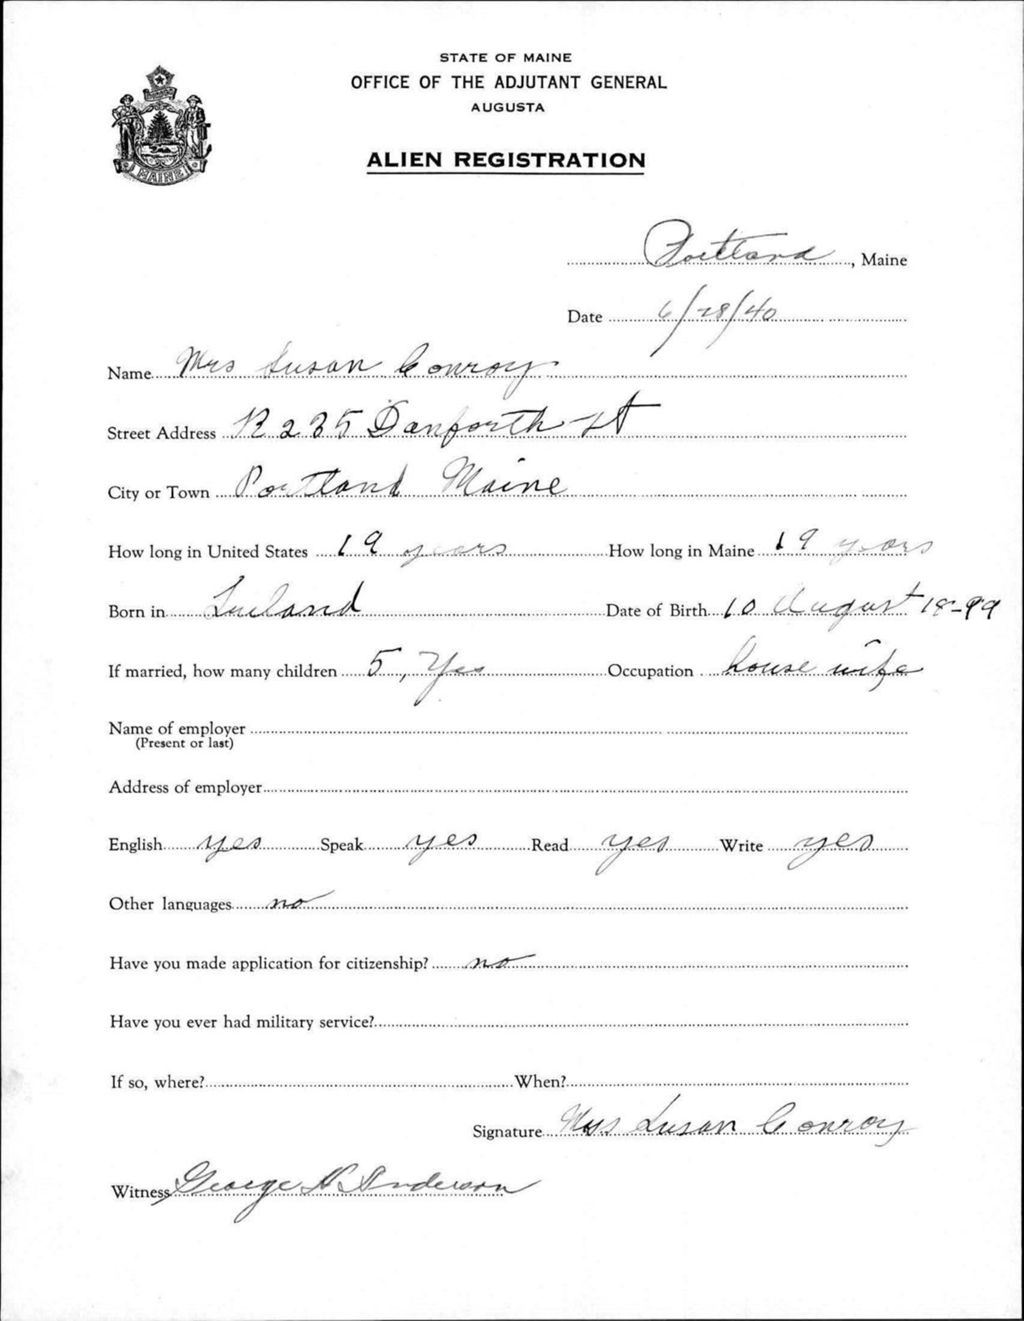 STATE OF MAINE
OFFICE OF THE ADJUTANT GENERAL
AUGUSTA
ALIEN REGISTRATION
MAINE
Portland, Maine
Date 6/28/40
Name Mrs Susan Conroy
Street Address R 235 Danforth St
City or Town Portland Maine
How long in United States 19 years How long in Maine 19 years
Born in Ireland Date of Birth 10 August 18-99
If married, how many children 5, Yes Occupation house wife
Name of employer
(Present or last)
Address of employer
English yes Speak yes Read yes Write yes
Other languages no
Have you made application for citizenship? no
Have you ever had military service?
If so, where? When?
Signature Mrs Susan Conroy
Witness George N. Anderson